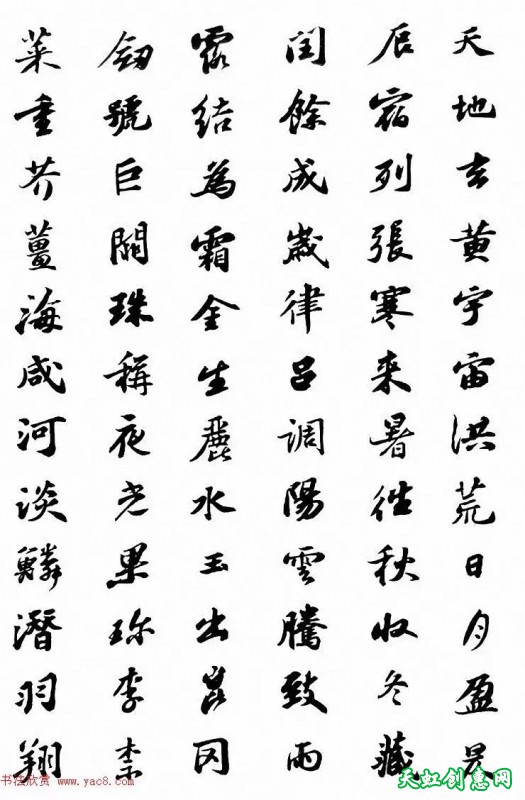 天地玄黄宇宙洪荒日月盈昃
辰宿列張寒来暑往秋收冬藏
閏餘成歲律呂調陽雲騰致雨
露結為霜金生麗水玉出崑岡
劎號巨闕珠稱夜光果珎李柰
菜重芥薑海咸河淡鱗潛羽翔
书法欣赏 www.yac8.com
天虹创意网